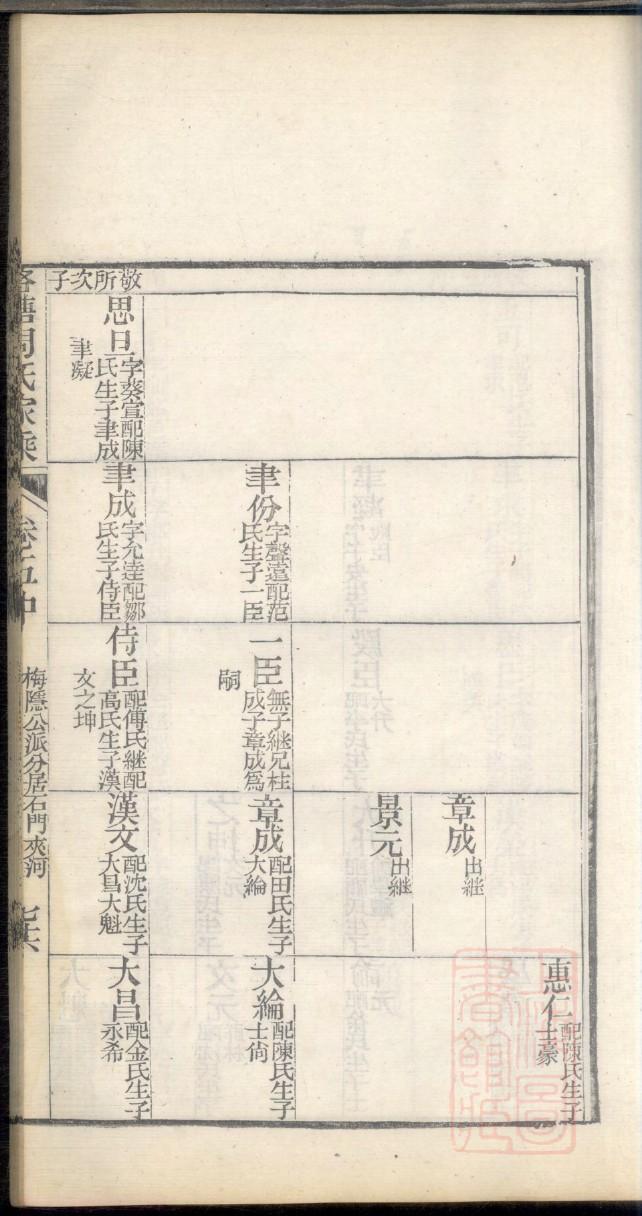 敬所次子
惠仁
配陳氏生子
士豪
章成
出継
景元
出継
聿份
字聲遠配范
氏生子一臣
一臣
無子継兄桂
成子章成為
嗣
章成
配田氏生子
大綸
大綸
配陳氏生子
士尙
思旦
字葵宣配陳
氏生子聿成
聿凝
聿成
字允逵配鄒
氏生子侍臣
侍臣
配傅氏継配
高氏生子漢
文之坤
漢文
配沈氏生子
大昌大魁
大昌
配金氏生子
永希
周氏家乘
卷五中
梅隱公派分居石門夾河
七六